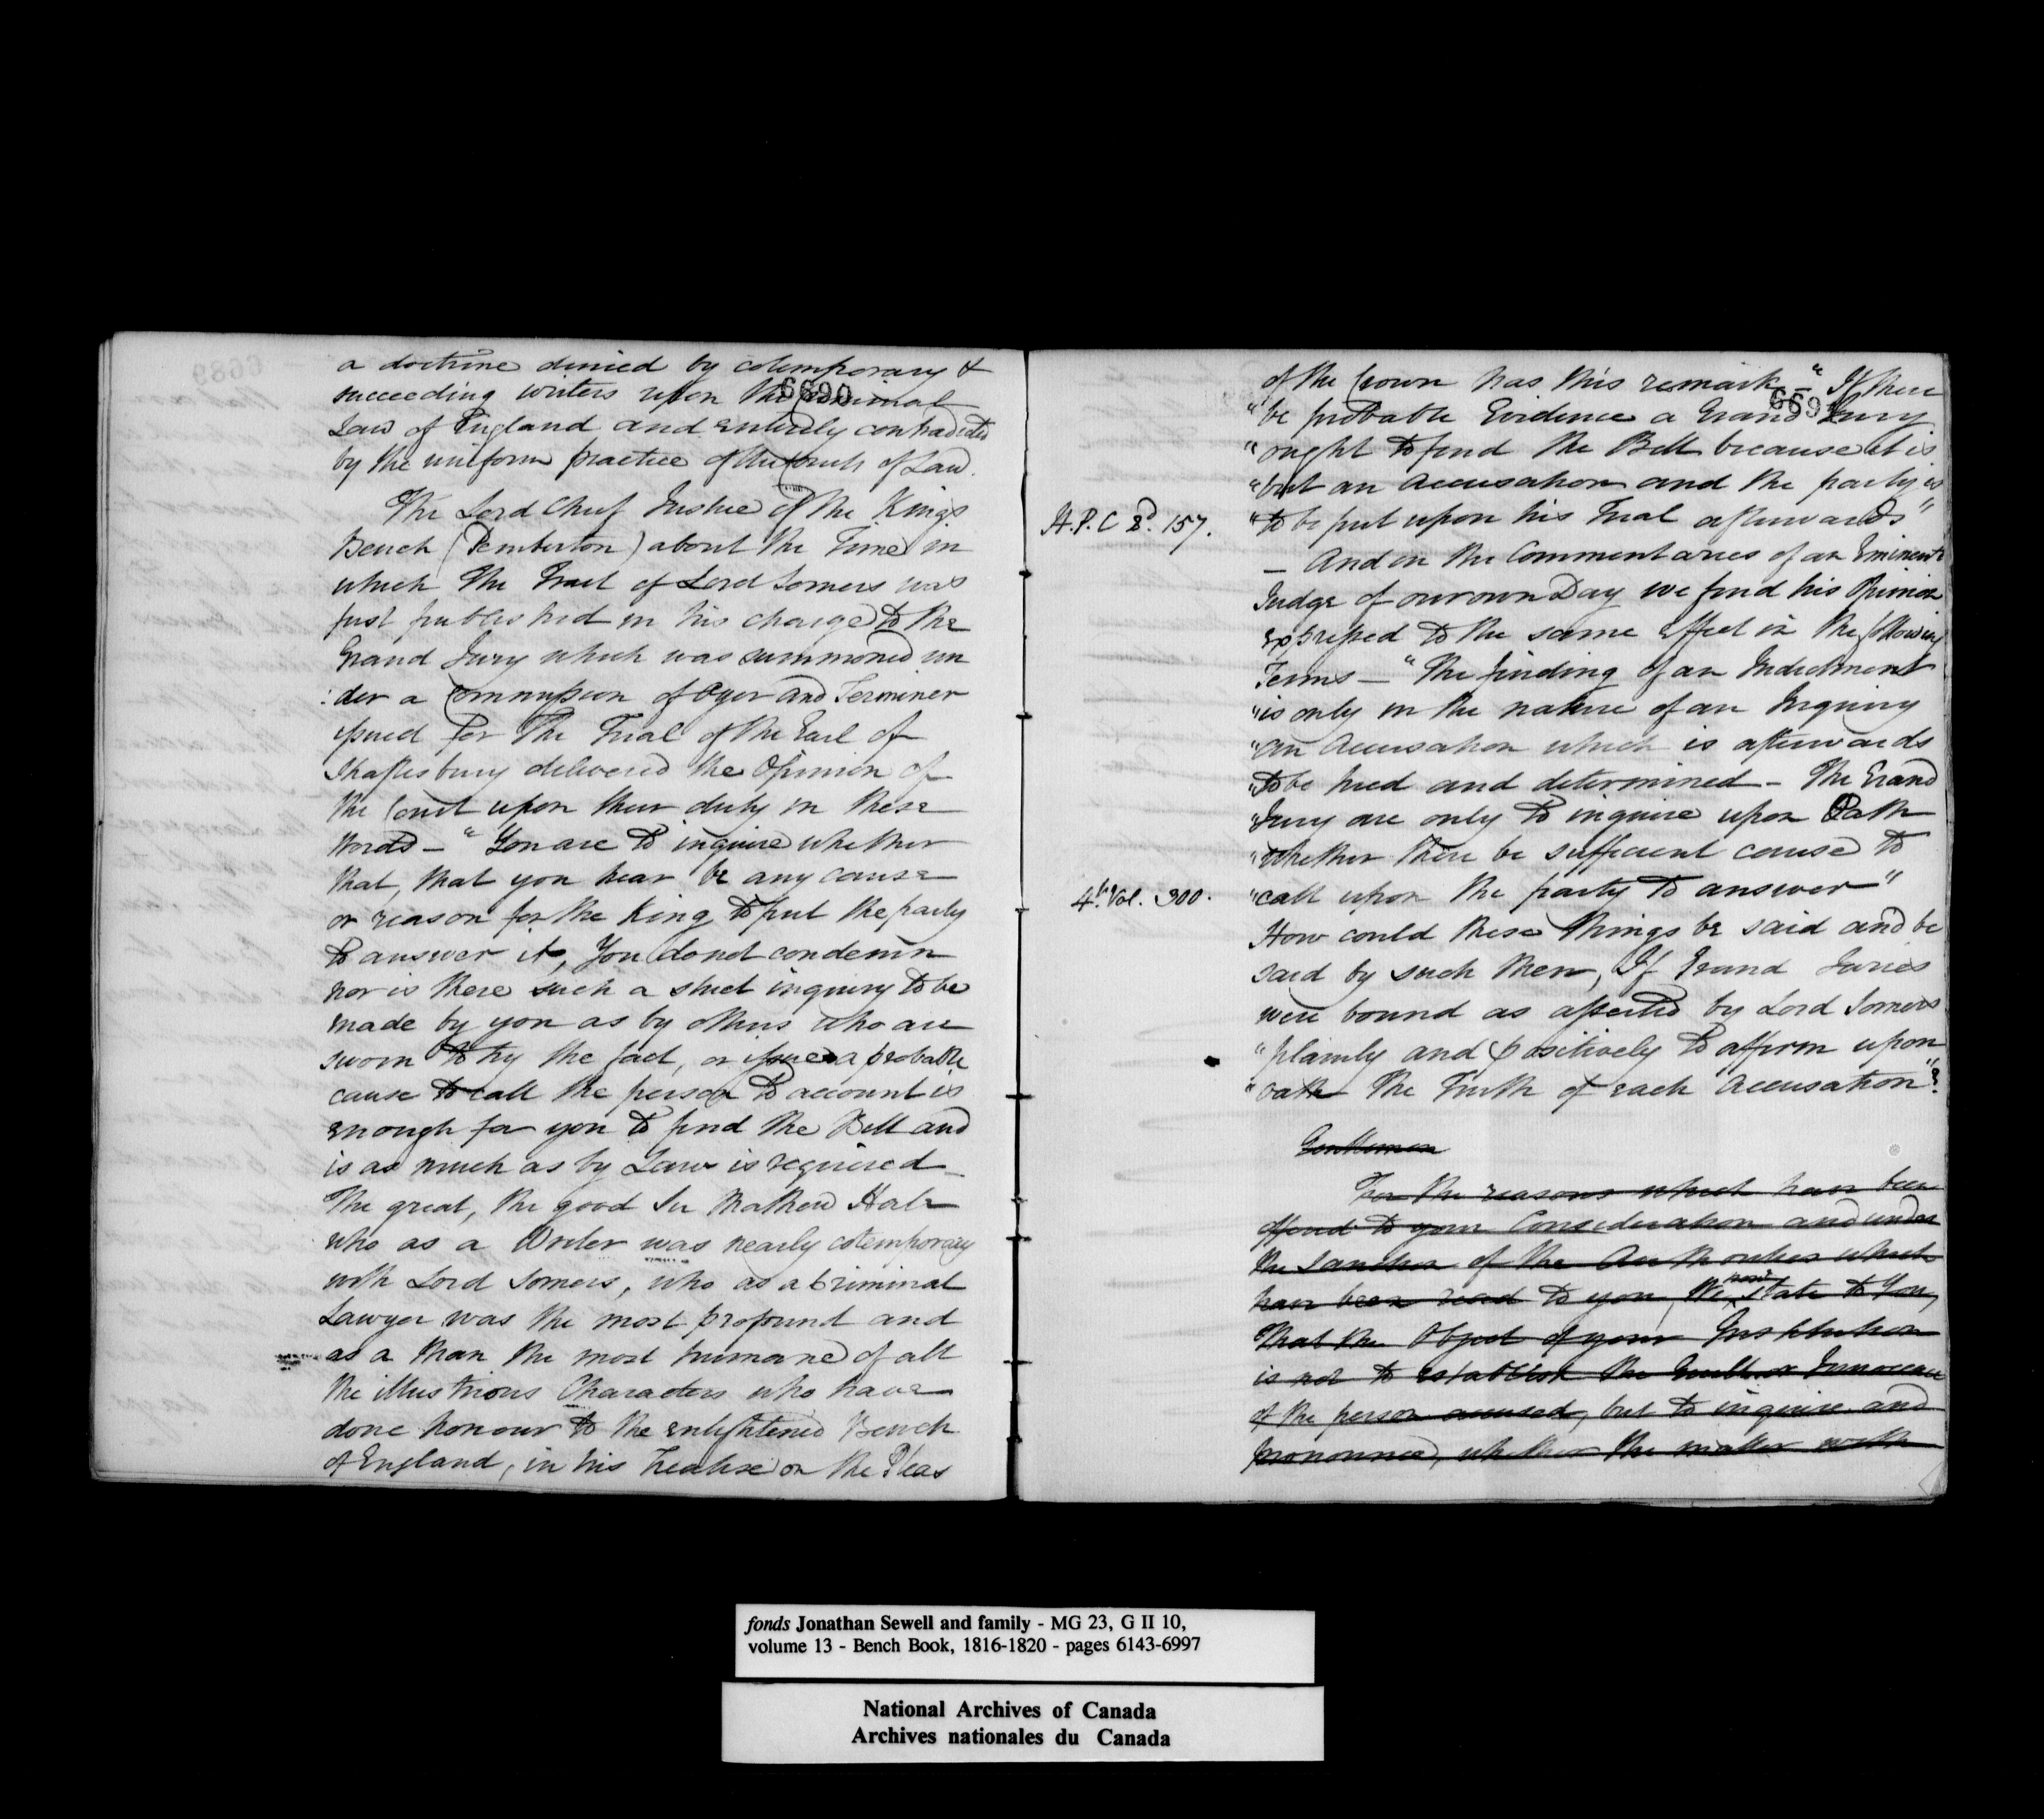 a doctrine denied by cotemporary &
6690
succeeding writers upon the Criminal
Law of England and entirely contradicted
by the uniform practice of the Courts of Law.
The Lord Chief Justice of the Kings
Bench (Pemberton) about the Time in
which the Tract of Lord Somers was
first published in his charge to the
Grand Jury which was summoned un
:der a Commission of Oyer and Terminer
issued for the Trial of the Earl of
Shaftesbury delivered the Opinion of
the Court upon their duty in these
Words — "You are to inquire whether
that, that you hear be any cause
or reason for the King to put the party
to answer it, You do not condemn
nor is there such a strict inquiry to be
made by you as by others who are
sworn to try the fact, or issue a probable
cause to call the person to account is
enough for you to find the Bill and
is as much as by Law is required —
The great, the good Sir Mathew Hale
who as a Writer was nearly cotemporary
with Lord Somers, who as a Criminal
Lawyer was the most profound and
as a Man the most humane of all
the illustrious Characters who have
done honour to the enlightened Bench
of England, in his Treatise on the Pleas
of the Crown has this remark — "If there
6691
"be probable Evidence a Grand Jury
"ought to find the Bill because it is
"but an Accusation and the party is
H.P.C 2d. 157.
"to be put upon his Trial afterwards"
— And in the Commentaries of an Eminent
Judge of our own Day we find his Opinion
expressed to the same effect in the following
Terms — "The finding of an Indictment
"is only in the nature of an Inquiry
"an Accusation which is afterwards
"to be tried and determined — The Grand
"Jury are only to inquire upon Oath
"whether there be sufficient cause to
4th Vol. 300.
"call upon the party to answer"
How could these things be said and be
said by such Men, If Grand Juries
were bound as asserted by Lord Somers
"plainly and positively to affirm upon
"oath the Truth of each Accusation"?
Gentlemen
For the reasons which have been
offered to your Consideration and under
the Sanction of the Authorities which
have been read to you, We state to You,
That the Object of your Institution
is not to establish the Guilt or Innocence
of the person accused, but to inquire and
pronounce, whether the matter with
fonds Jonathan Sewell and family - MG 23, G II 10,
volume 13 - Bench Book, 1816-1820 - pages 6143-6997
National Archives of Canada
Archives nationales du Canada